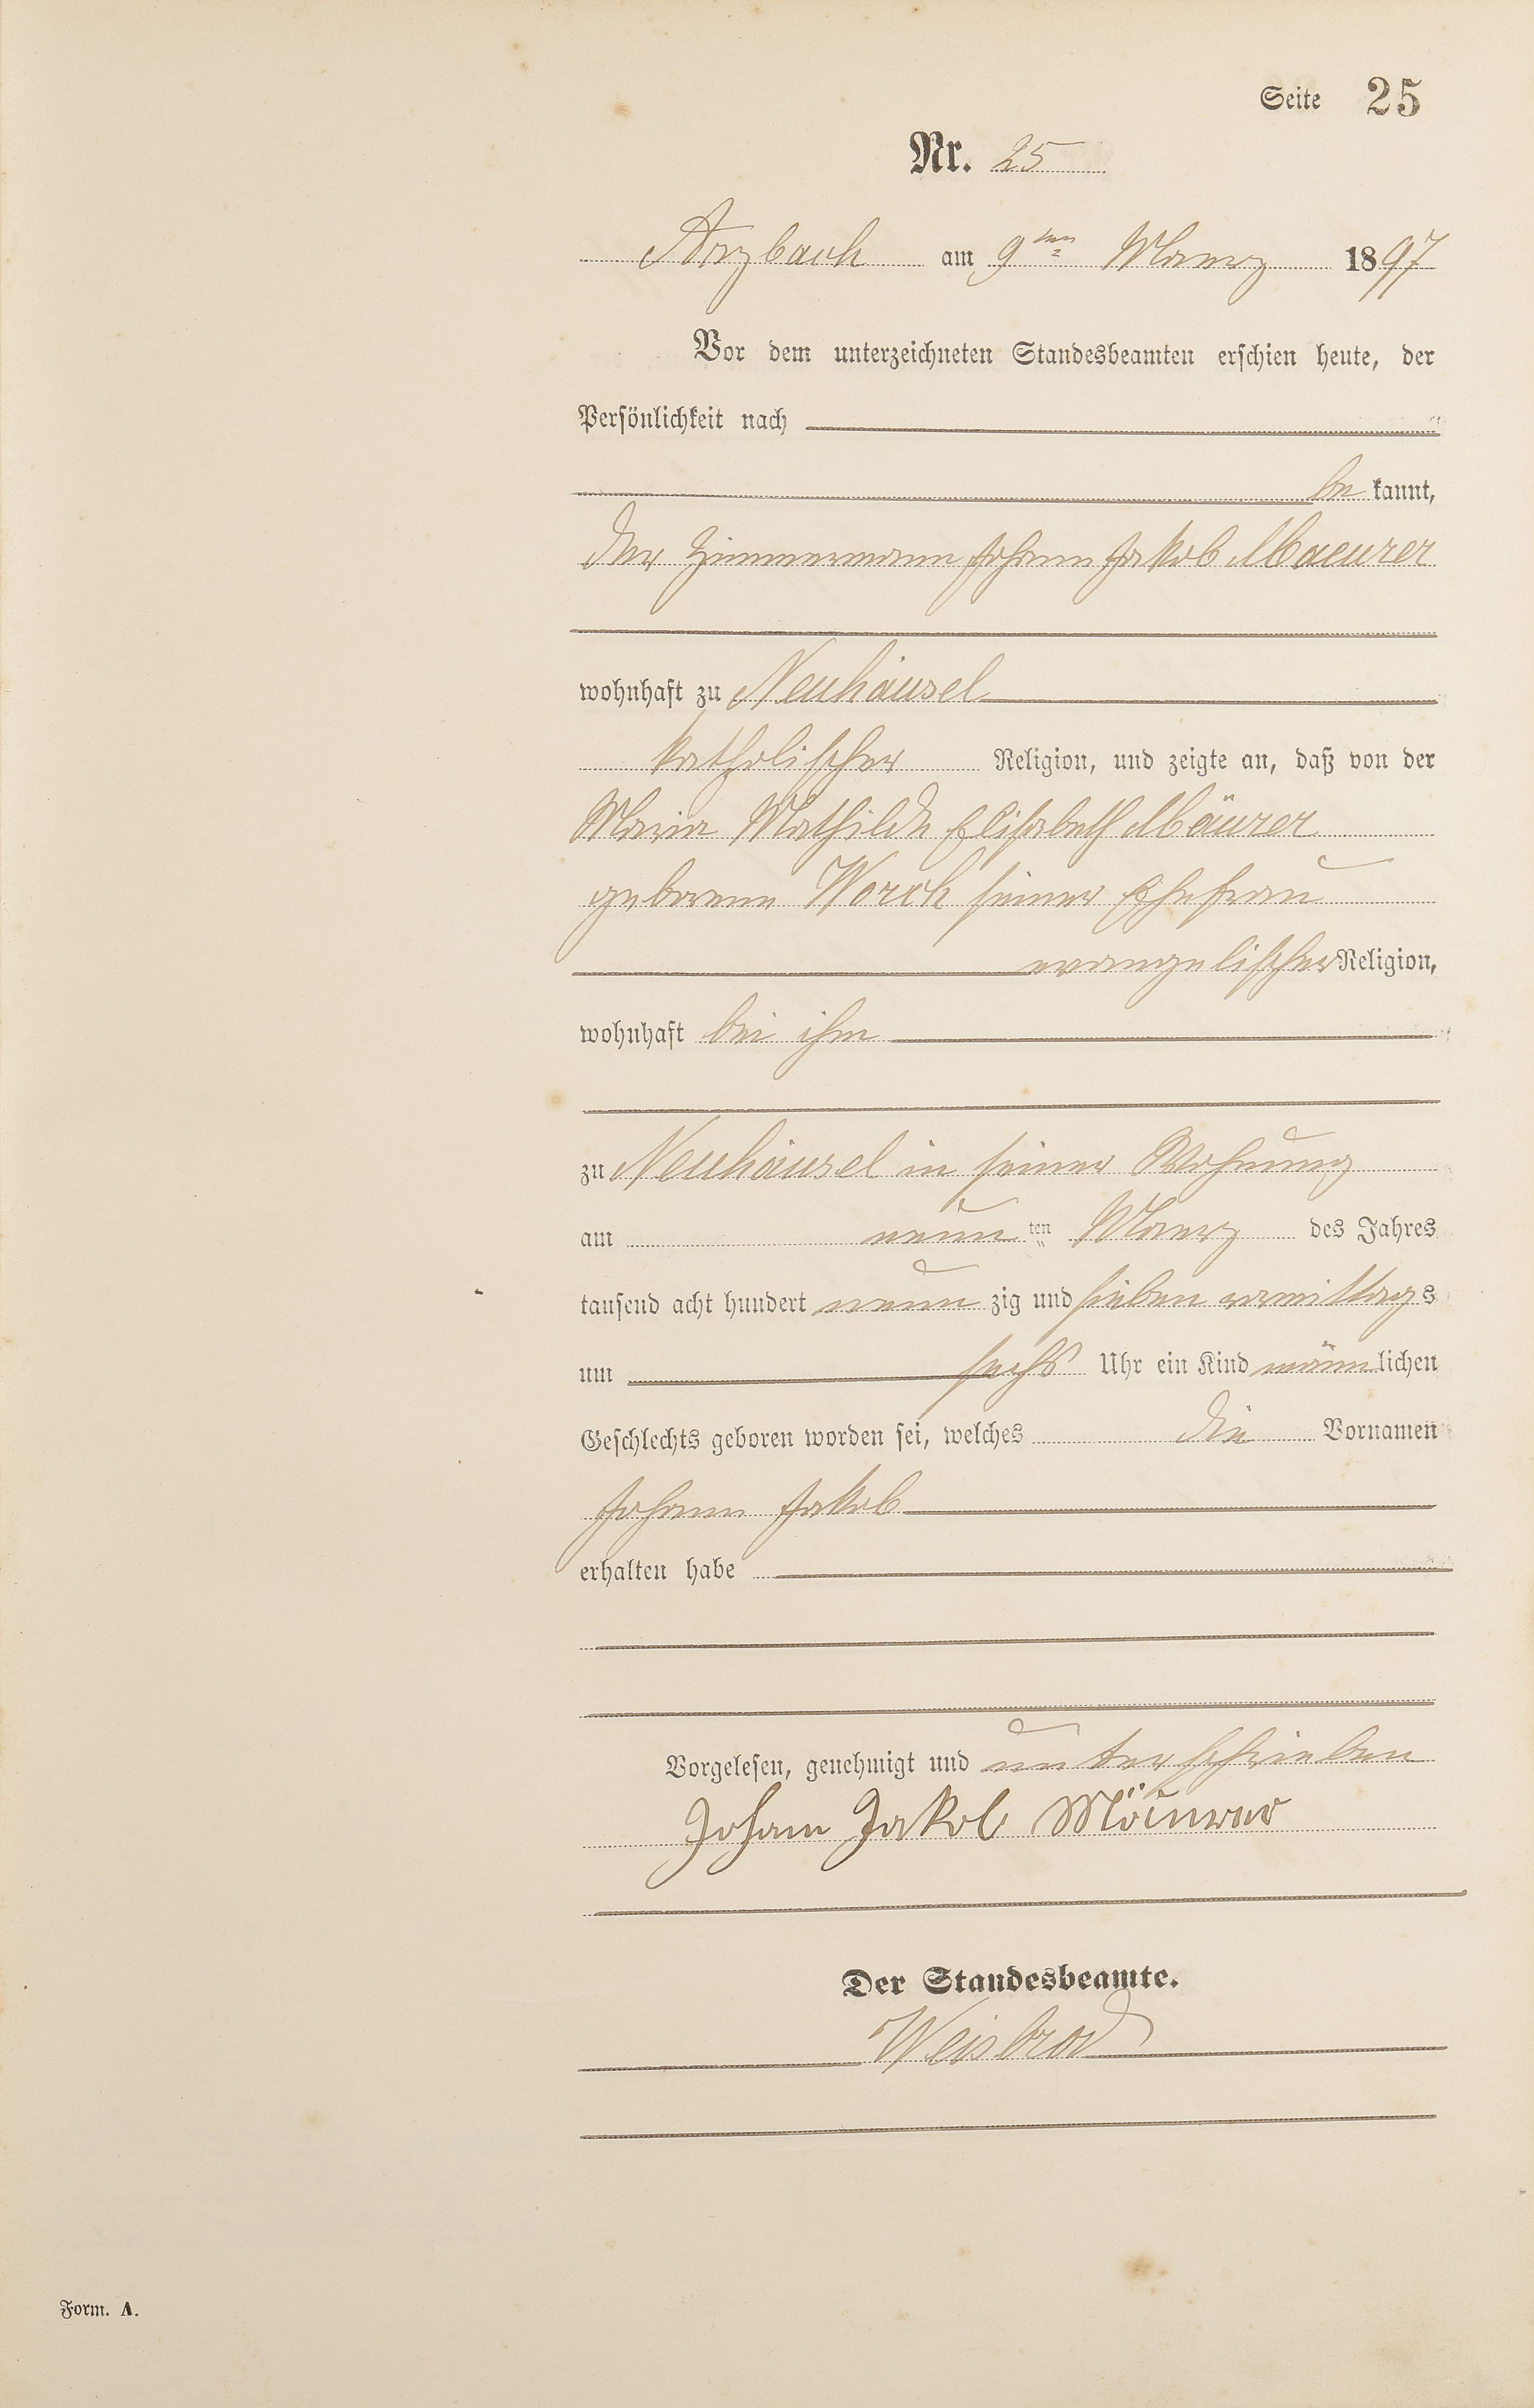 Seite 25
Nr. 25
Arzbach am 9ten Maerz 1897
Vor dem unterzeichneten Standesbeamten erschien heute, der
Persönlichkeit nach
bekannt,
der Zimmermann Johann Jakob Maeurer
wohnhaft zu Neuhäusel
katholischer Religion, und zeigte an, daß von der
Maria Mathilde Elisabeth Mäurer
geborene Worch seiner Ehefrau
evangelischer Religion,
wohnhaft bei ihm
zu Neuhäusel in seiner Wohnung
am neunten Maerz des Jahres
tausend acht hundert neunzig und sieben vormittags
um sechs Uhr ein Kind männlichen
Geschlechts geboren worden sei, welches die Vornamen
Johann Jakob
erhalten habe
Vorgelesen, genehmigt und unterschrieben
Johann Jakob Mäurer
Der Standesbeamte.
Weisbrod
Form. A.